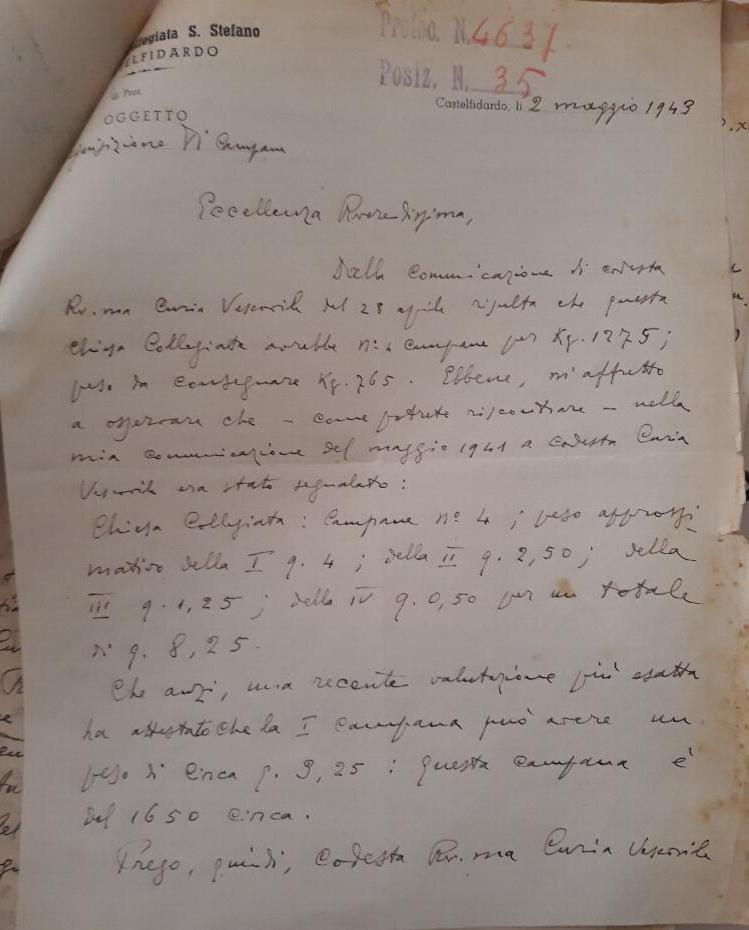 legiata S. Stefano
ELFIDARDO
di Prot.
OGGETTO
Di Campane
Protoc. N. 4637
Posiz. N. 35
Castelfidardo, li 2 maggio 1943
Eccellenza Reverendissima,
Dalla comunicazione di codesta
Rev.ma Curia Vescovile del 28 aprile risulta che questa
Chiesa Collegiata avrebbe n° 4 campane per Kg. 1275;
peso da consegnare Kg. 765. Ebbene, m'affretto
a osservare che - come potrete riscontrare - nella
mia comunicazione del maggio 1941 a codesta Curia
Vescovile era stato segnalato:
Chiesa Collegiata: Campane n° 4; peso approssi-
mativo della I q. 4; della II q. 2,50; della
III q. 1,25; della IV q. 0,50 per un totale
di q. 8,25.
Che anzi, una recente valutazione più esatta
ha attestato che la I campana può avere un
peso di circa q. 3,25: questa campana è
del 1650 circa.
Prego, quindi, codesta Rev.ma Curia Vescovile